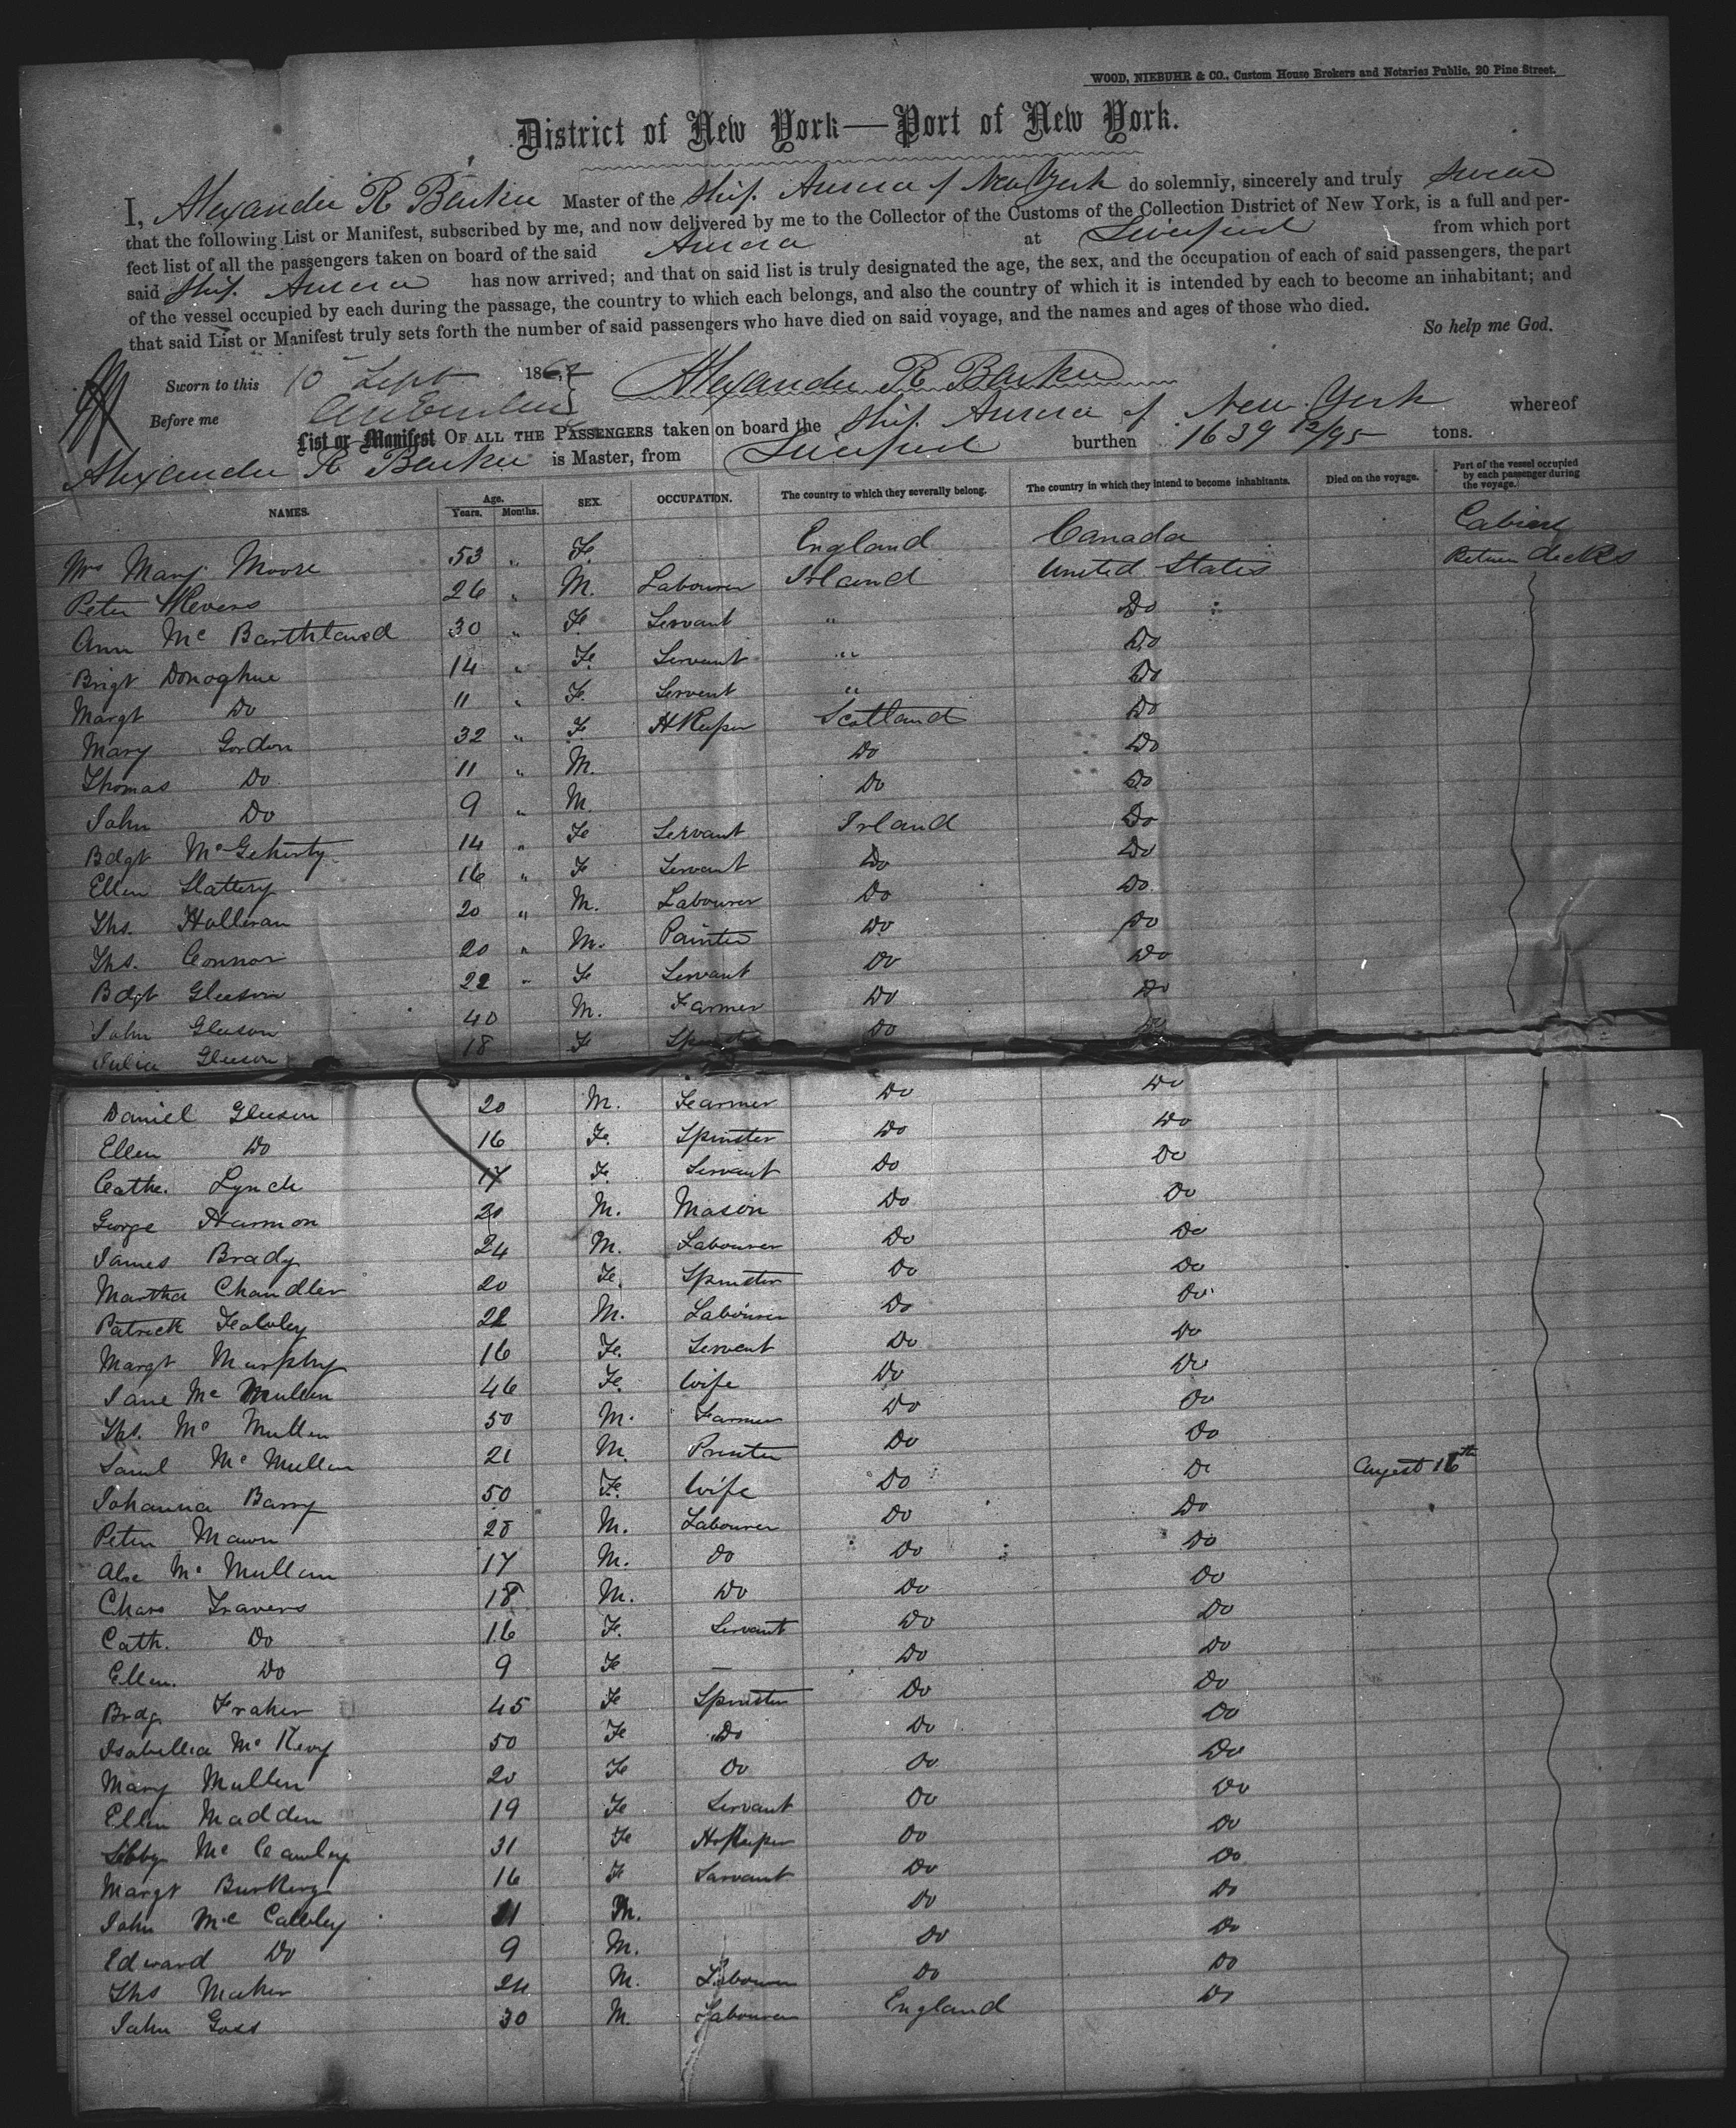 WOOD, NIEBUHR & CO., Custom House Brokers and Notaries Public, 20 Pine Street.
District of New York—Port of New York.
I, Alexander R Barker Master of the Ship Aurora of New York do solemnly, sincerely and truly swear
that the following List or Manifest, subscribed by me, and now delivered by me to the Collector of the Customs of the Collection District of New York, is a full and per-
fect list of all the passengers taken on board of the said Aurora at Liverpool from which port
said Ship Aurora has now arrived; and that on said list is truly designated the age, the sex, and the occupation of each of said passengers, the part
of the vessel occupied by each during the passage, the country to which each belongs, and also the country of which it is intended by each to become an inhabitant; and
that said List or Manifest truly sets forth the number of said passengers who have died on said voyage, and the names and ages of those who died.
So help me God.
Sworn to this 10 Sept 186 Alexander R Barker
Before me
List or Manifest OF ALL THE PASSENGERS taken on board the Ship Aurora of New York whereof
Alexander R Barker is Master, from Liverpool burthen 1639 12/95 tons.
NAMES. Age. Years. Months. SEX. OCCUPATION. The country to which they severally belong. The country in which they intend to become inhabitants. Died on the voyage. Part of the vessel occupied by each passenger during the voyage.
Mrs Mary Moore 53 " Fe England Canada Cabin
Peter 26 " M. Labourer Irland United States Between decks
Ann Mc 30 " Fe Servant " Do
Brigt Donoghue 14 " Fe Servant " Do
Margt Do 11 " Fe Servent " Do
Mary Gordon 32 " Fe H Keeper Scotland Do
Thomas Do 11 " M. Do Do
John Do 9 " M. Do Do
Bdgt McGeherty 14 " Fe Servant Irland Do
Ellen Slattery 16 " Fe Servant Do Do
Ths. Holleran 20 " M. Labourer Do Do
Ths. Connor 20 " M. Painter Do Do
Bdgt Gleeson 22 " Fe Servant Do Do
John Gleeson 40 M. Farmer Do Do
Julia Gleeson 18 Fe Do
Daniel Gleeson 20 M. Fearmer Do Do
Ellen Do 16 Fe. Spinster Do Do
Cathe. Lynch 17 Fe. Servant Do Do
George Harmon 20 M. Mason Do Do
James Brady 24 M. Labourer Do Do
Martha Chandler 20 Fe. Spinster Do Do
Patrick 22 M. Labourer Do Do
Margt Murphy 16 Fe. Servent Do Do
Jane Mc Mullen 46 Fe. Wife Do Do
Ths. Mc Mullen 50 M. Farmer Do Do
Saml Mc Mullen 21 M. Do Do
Johanna Barry 50 Fe. Wife Do Do Augest 16th
Peter Mawn 28 M. Labourer Do Do
Alxe Mc Mullen 17 M. Do Do Do
Chas Travers 18 M. Do Do Do
Cath. Do 16 Fe. Servant Do Do
Ellen. Do 9 Fe — Do Do
Brdg. Fraher 45 Fe Spinster Do Do
Isabellia Mc Kevy 50 Fe Do Do Do
Mary Mullen 20 Fe Do Do Do
Ellen Madden 19 Fe Servant Do Do
Libby Mc Cawley 31 Fe H Keeper Do Do
Margt 16 Fe Sarvant Do Do
John Mc Calley 11 M. Do Do
Edward Do 9 M. Do Do
Ths Maher 24 M. Labourer Do Do
John Goss 30 M. Labourer England Do